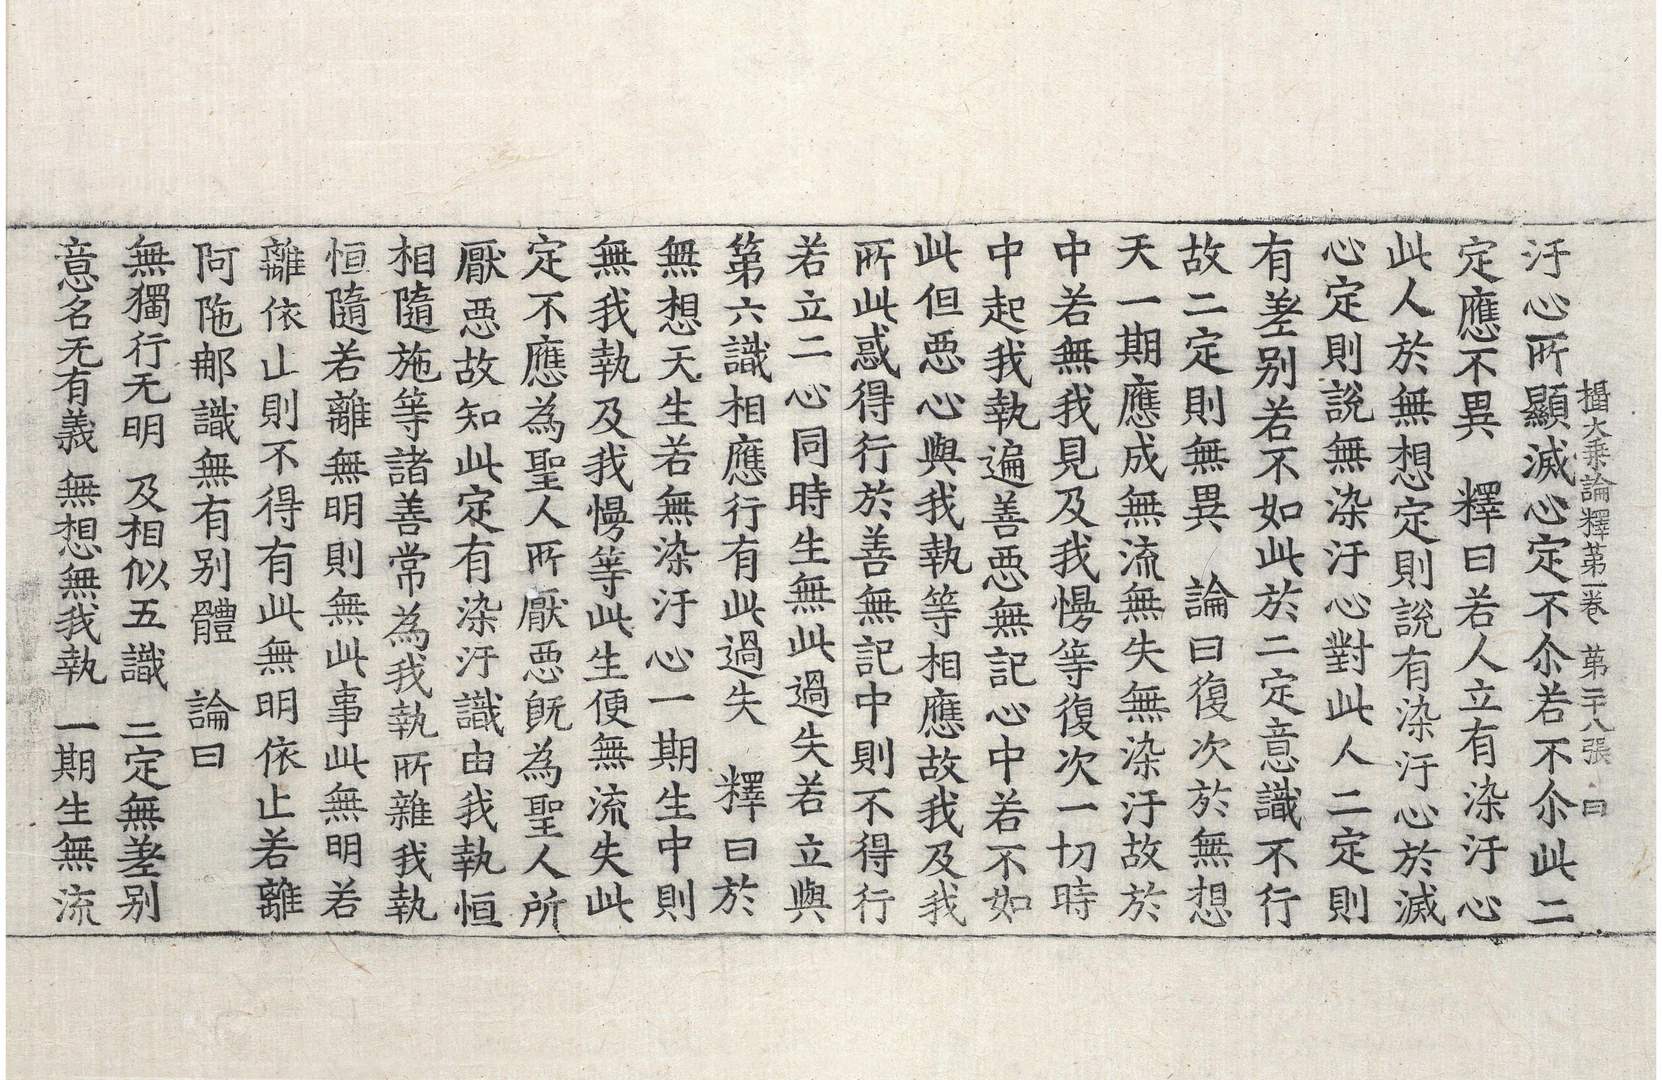 攝大乘論釋第一卷 第二十八張 曰
汙心所顯滅心定不尒若不尒此二
定應不異 釋曰若人立有染汙心
此人於無想定則說有染汙心於滅
心定則說無染汙心對此人二定則
有差别若不如此於二定意識不行
故二定則無異 論曰復次於無想
天一期應成無流無失無染汙故於
中若無我見及我慢等復次一切時
中起我執遍善惡無記心中若不如
此但惡心與我執等相應故我及我
所此惑得行於善無記中則不得行
若立二心同時生無此過失若立與
第六識相應行有此過失 釋曰於
無想天生若無染汙心一期生中則
無我執及我慢等此生便無流失此
定不應為聖人所厭惡旣為聖人所
厭惡故知此定有染汙識由我執恒
相隨施等諸善常為我執所雜我執
恒隨若離無明則無此事此無明若
離依止則不得有此無明依止若離
阿陁𨙻識無有别體 論曰
無獨行无明 及相似五識 二定無差别
意名无有義 無想無我執 一期生無流